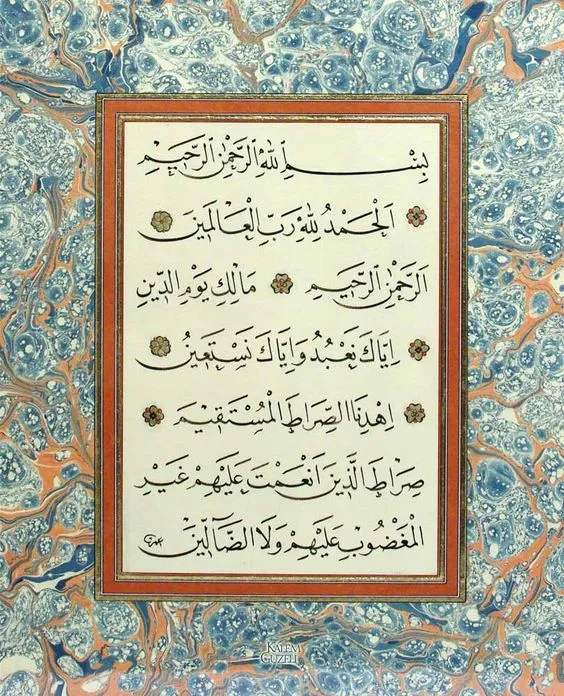 بِسْمِ اللهِ الرَّحْمٰنِ الرَّحِيمِ
اَلْحَمْدُ لِلّٰهِ رَبِّ الْعَالَمِينَ
اَلرَّحْمٰنِ الرَّحِيمِ مَالِكِ يَوْمِ الدِّينِ
اِيَّاكَ نَعْبُدُ وَاِيَّاكَ نَسْتَعِينُ
اِهْدِنَا الصِّرَاطَ الْمُسْتَقِيمَ
صِرَاطَ الَّذِينَ اَنْعَمْتَ عَلَيْهِمْ غَيْرِ
الْمَغْضُوبِ عَلَيْهِمْ وَلَا الضَّٓالِّينَ
KALEM GÜZELİ